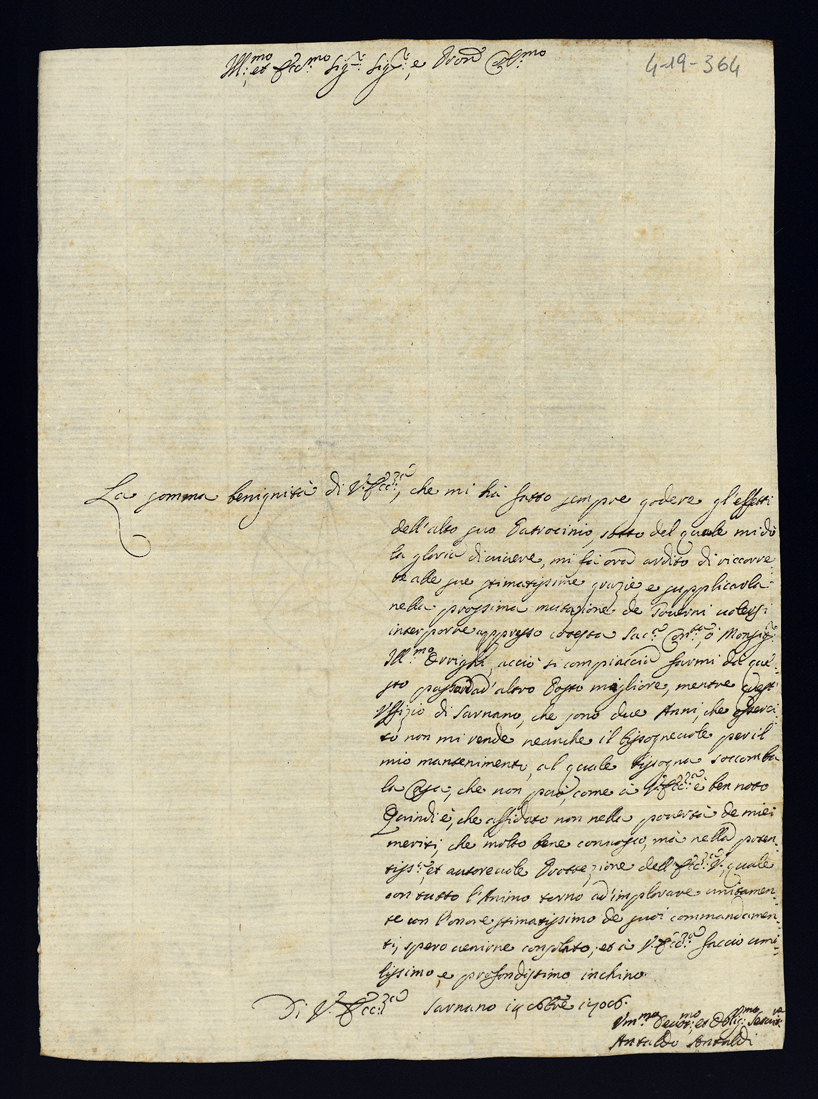 Ill:mo et Ecc:mo Sig:re Sig:re, e Pron Col:mo
4-19-364
La somma benignità di V:ra Ecc:za, che mi hà fatto sempre godere gl'effetti
dell'alto suo Patrocinio, sotto del quale mi dò
la gloria di vivere, mi fà ora ardito di ricorre-
re alle sue stimatissime grazie, e supplicarla
nella prossima mutazione de Governi volersi
interporre appresso cotesta Sac:ra Cons:ta, ò Monsig:re
Ill:mo Orighi, acciò si compiaccia farmi da que-
sto passar ad' altro Posto migliore, mentre quest'
Uffizio di Sarnano, che sono due Anni, che esserci-
to non mi rende neanche il bisognevole per il
mio mantenimento, al quale bisogna soccomba
la Casa, che non può, come à V:ra Ecc:za è ben noto
Quindi è, che affidato non nella povertà de miei
meriti, che molto bene connosco, mà nella poten-
tiss:ma, et autorevole Protezzione dell'Ecc:za V:ra, quale
con tutto l'Animo torno ad' implorare unitamen-
te con l'onore stimatissimo de suoi commandamen-
ti, spero venirne consolato, et à V:ra Ecc:za faccio umi-
lissimo, e profondissimo inchino.
Di V:ra Ecc:za Sarnano 14 8bre 1706.
Um:mo Devot:mo, et Oblig:mo Servit:re
Antaldo Antaldi